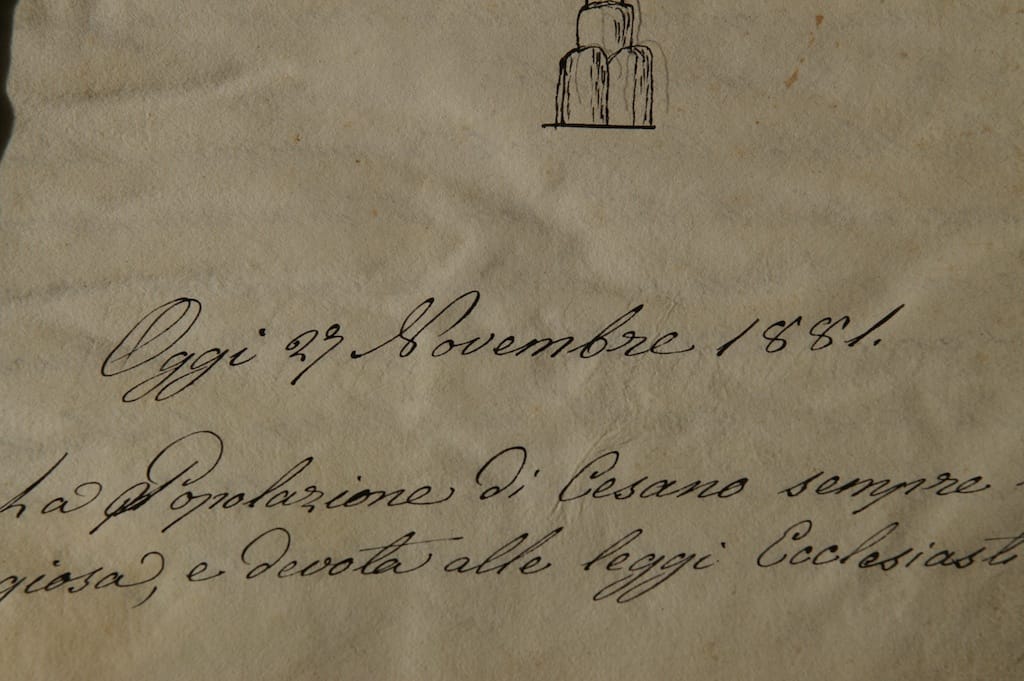 Oggi 27 Novembre 1881.
La Popolazione di Cesano sempre
giosa, e devota alle leggi Ecclesiasti